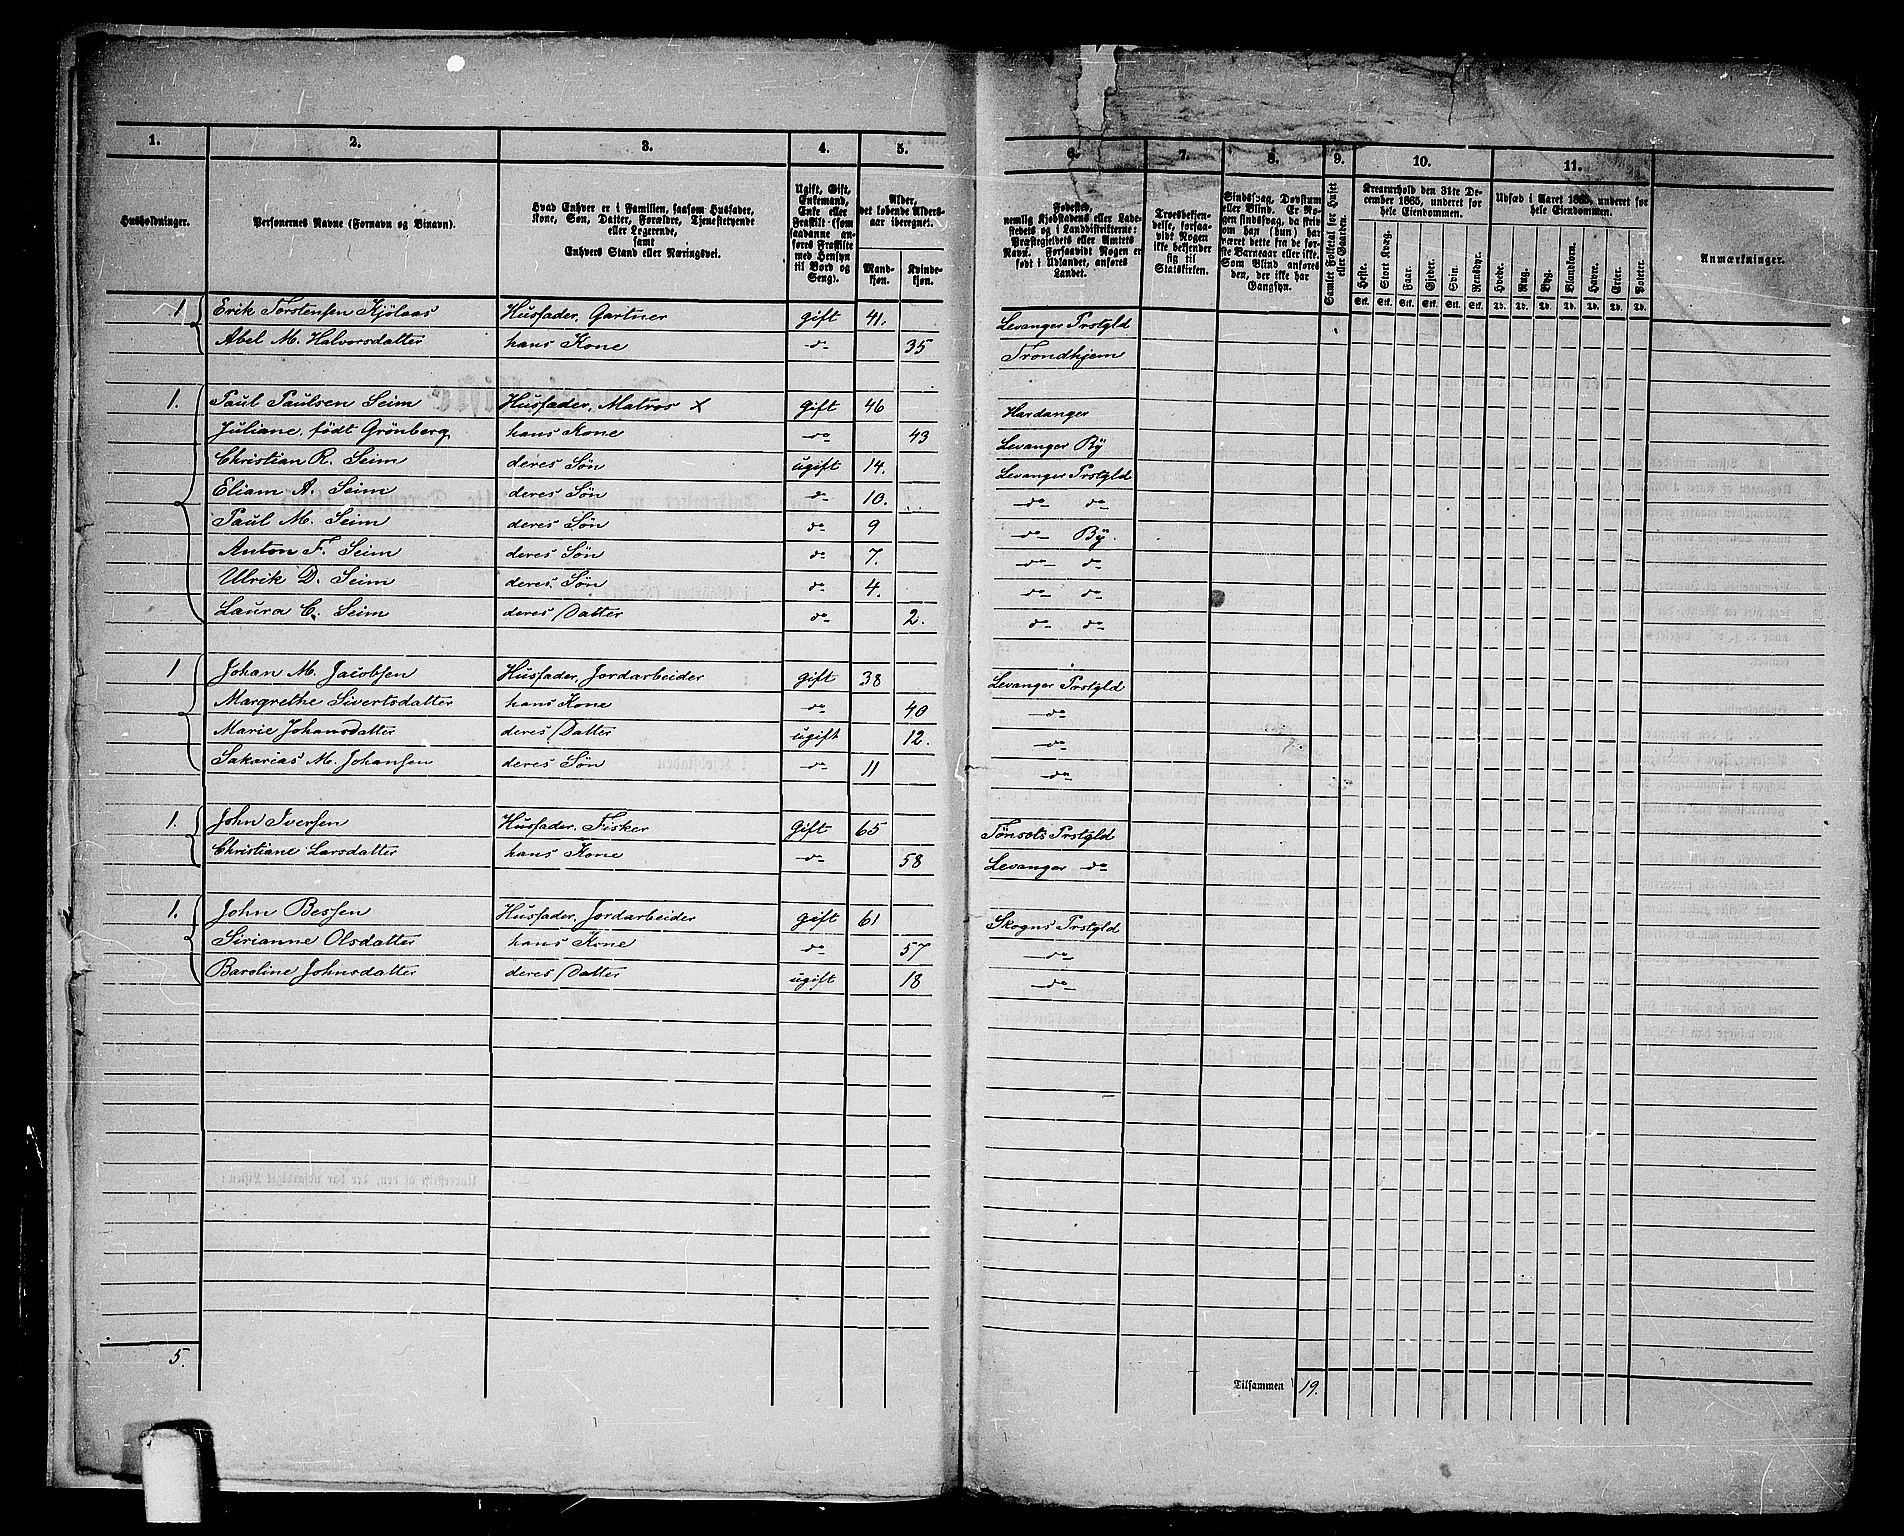 1. 2. 3. 4. 5. 6. 7. 8. 9. 10. 11.
Husholdninger.
Personernes Navne (Fornavn og Binavn).
Hvad Enhver er i Familien, saasom Husfader, Kone, Søn, Datter, Forældre, Tjenestetyende eller Logerende, samt Enhvers Stand eller Næringsvei.
Ugift, Gift, Enkemand, Enke eller Fraskilt (som saadanne anføres Fraskilte med Hensyn til Bord og Seng).
Alder, det løbende Aldersaar iberegnet.
Mandkjøn. Kvindekjøn.
Fødested, nemlig Kjøbstadens eller Ladestedets og i Landdistrikterne: Præstegjeldets eller Amtets Navn. Forsaavidt Nogen er født i Udlandet, anføres Landet.
Troesbekjendelse, forsaavidt Nogen ikke bekjender sig til Statskirken.
Sindssvag, Døvstum eller Blind. Er Nogen sindssvag, da skrives om han (hun) har været dette fra de første Barneaar eller ikke. Som Blind anføres den, der ikke har Gangsyn.
Samlet Folketal for Huset eller Gaarden.
Kreaturhold den 31te December 1865, underet for hele Eiendommen.
Heste. Stort Kvæg. Faar. Gjeder. Svin. Rensdyr.
Stk. Stk. Stk. Stk. Stk. Stk.
Udsæd i Aaret 1865, underet for hele Eiendommen.
Hvede. Rug. Byg. Blandkorn. Havre. Erter. Poteter.
Td. Td. Td. Td. Td. Td. Td.
Anmærkninger.
1 Erik Torstensen Kjölaas Husfader, Gartner gift 41. Levanger Prstgld
Abel M. Halvorsdatter hans Kone do 35 Trondhjem
1. Paul Paulsen Seim Husfader, Matros x gift 46 Hardanger
Juliane, födt Grönberg hans Kone do 43 Levanger By
Christian R. Seim deres Sön ugift 14. Levanger Prstgld
Eliam A. Seim deres Sön do 10. do do
Paul M. Seim deres Sön do 9 do By.
Anton F. Seim deres Sön do 7. do do
Ulrik D. Seim deres Sön do 4. do do
Laura C. Seim deres Datter do 2. do do
1 Johan M. Jacobsen Husfader, Jordarbeider gift 38 Levanger Prstgld
Margrethe Sivertsdatter hans Kone do 40 do
Marie Johansdatter deres Datter ugift 12. do
Sakarias M. Johansen deres Sön do 11 do
1. John Iversen Husfader, Fisker gift 65 Tönsets Prstgld
Christiane Larsdatter hans Kone do 58 Levanger do
1. John Bessen Husfader, Jordarbeider gift 61 Skogns Prstgld
Sirianne Olsdatter hans Kone do 57 do
Baroline Johnsdatter deres Datter ugift 18 do
5.
Tilsammen 19.